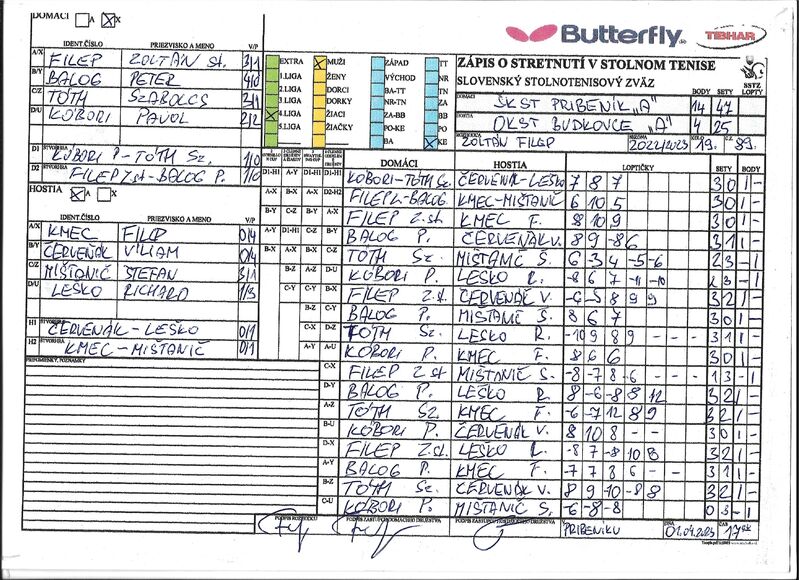 DOMÁCI A X
Butterfly TIBHAR
IDENT.ČÍSLO PRIEZVISKO A MENO V/P
A/X FILEP ZOLTÁN st. 3/1
B/Y BALOG PETER 4/0
C/Z TÓTH SZABOLCS 3/1
D/U KÓBORI PAVOL 2/2
D1 KÓBORI P-TÓTH Sz. 1/0
D2 FILEP Z.st-BALOG P. 1/0
HOSTIA A X
IDENT.ČÍSLO PRIEZVISKO A MENO V/P
A/X KMEC FILIP 0/4
B/Y ČERVEŇÁK VILIAM 0/4
C/Z MIŠTANIČ ŠTEFAN 3/1
D/U LEŠKO RICHARD 1/3
H1 ČERVEŇÁK-LEŠKO 0/1
H2 KMEC-MIŠTANIČ 0/1
PRIPOMIENKY, POZNÁMKY
EXTRA MUŽI ZÁPAD TT
1.LIGA ŽENY VÝCHOD NR
2.LIGA DORCI BA-TT TN
3.LIGA DORKY NR-TN ZA
4.LIGA ŽIACI ZA-BB BB
5.LIGA ŽIAČKY PO-KE PO
BA KE
ZÁPIS O STRETNUTÍ V STOLNOM TENISE
SLOVENSKÝ STOLNOTENISOVÝ ZVÄZ
SSTZ
BODY SETY LOPTY
DOMÁCI ŠKST PRIBENÍK „A" 14 47
HOSTIA OKST BUDKOVCE „A" 4 25
ZOLTÁN FILEP 2022/2023 19. 89.
DOMÁCI HOSTIA LOPTIČKY SETY BODY
D1-H1 KÓBORI-TÓTH Sz. ČERVEŇÁK-LEŠKO 7 8 7 3 0 1 -
D2-H2 FILEP Z.-BALOG KMEC-MIŠTANIČ 6 10 5 3 0 1 -
FILEP Z.st. KMEC F. 8 10 9 3 0 1 -
BALOG P. ČERVEŇÁK V. 8 9 -8 6 3 1 1 -
TÓTH Sz. MIŠTANIČ S. -6 3 4 -5 -6 2 3 - 1
KÓBORI P. LEŠKO R. -8 6 7 -11 -10 2 3 - 1
FILEP Z.st. ČERVEŇÁK V. -6 -5 8 9 9 3 2 1 -
BALOG P. MIŠTANIČ S. 8 6 7 3 0 1 -
TÓTH Sz. LEŠKO R. -10 9 8 9 - 3 1 1 -
KÓBORI P. KMEC F. 8 6 6 3 0 1 -
C-X FILEP Z.st MIŠTANIČ S. -8 -7 8 -6 - 1 3 - 1
D-Y BALOG P. LEŠKO R. 8 -6 -8 8 12 3 2 1 -
A-Z TÓTH Sz. KMEC F. -6 -7 12 8 9 3 2 1 -
B-U KÓBORI P. ČERVEŇÁK V. 8 10 8 - - 3 0 1 -
D-X FILEP Z.st. LEŠKO R. -8 7 -8 10 8 3 2 1 -
A-Y BALOG P. KMEC F. -7 7 8 6 - 3 1 1 -
B-Z TÓTH Sz. ČERVEŇÁK V. 8 9 -10 -8 8 3 2 1 -
C-U KÓBORI P. MIŠTANIČ S. -6 -8 -8 0 3 - 1
PODPIS ROZHODCU
PRIBENÍKU DŇA 01.04.2023 ČAS 17